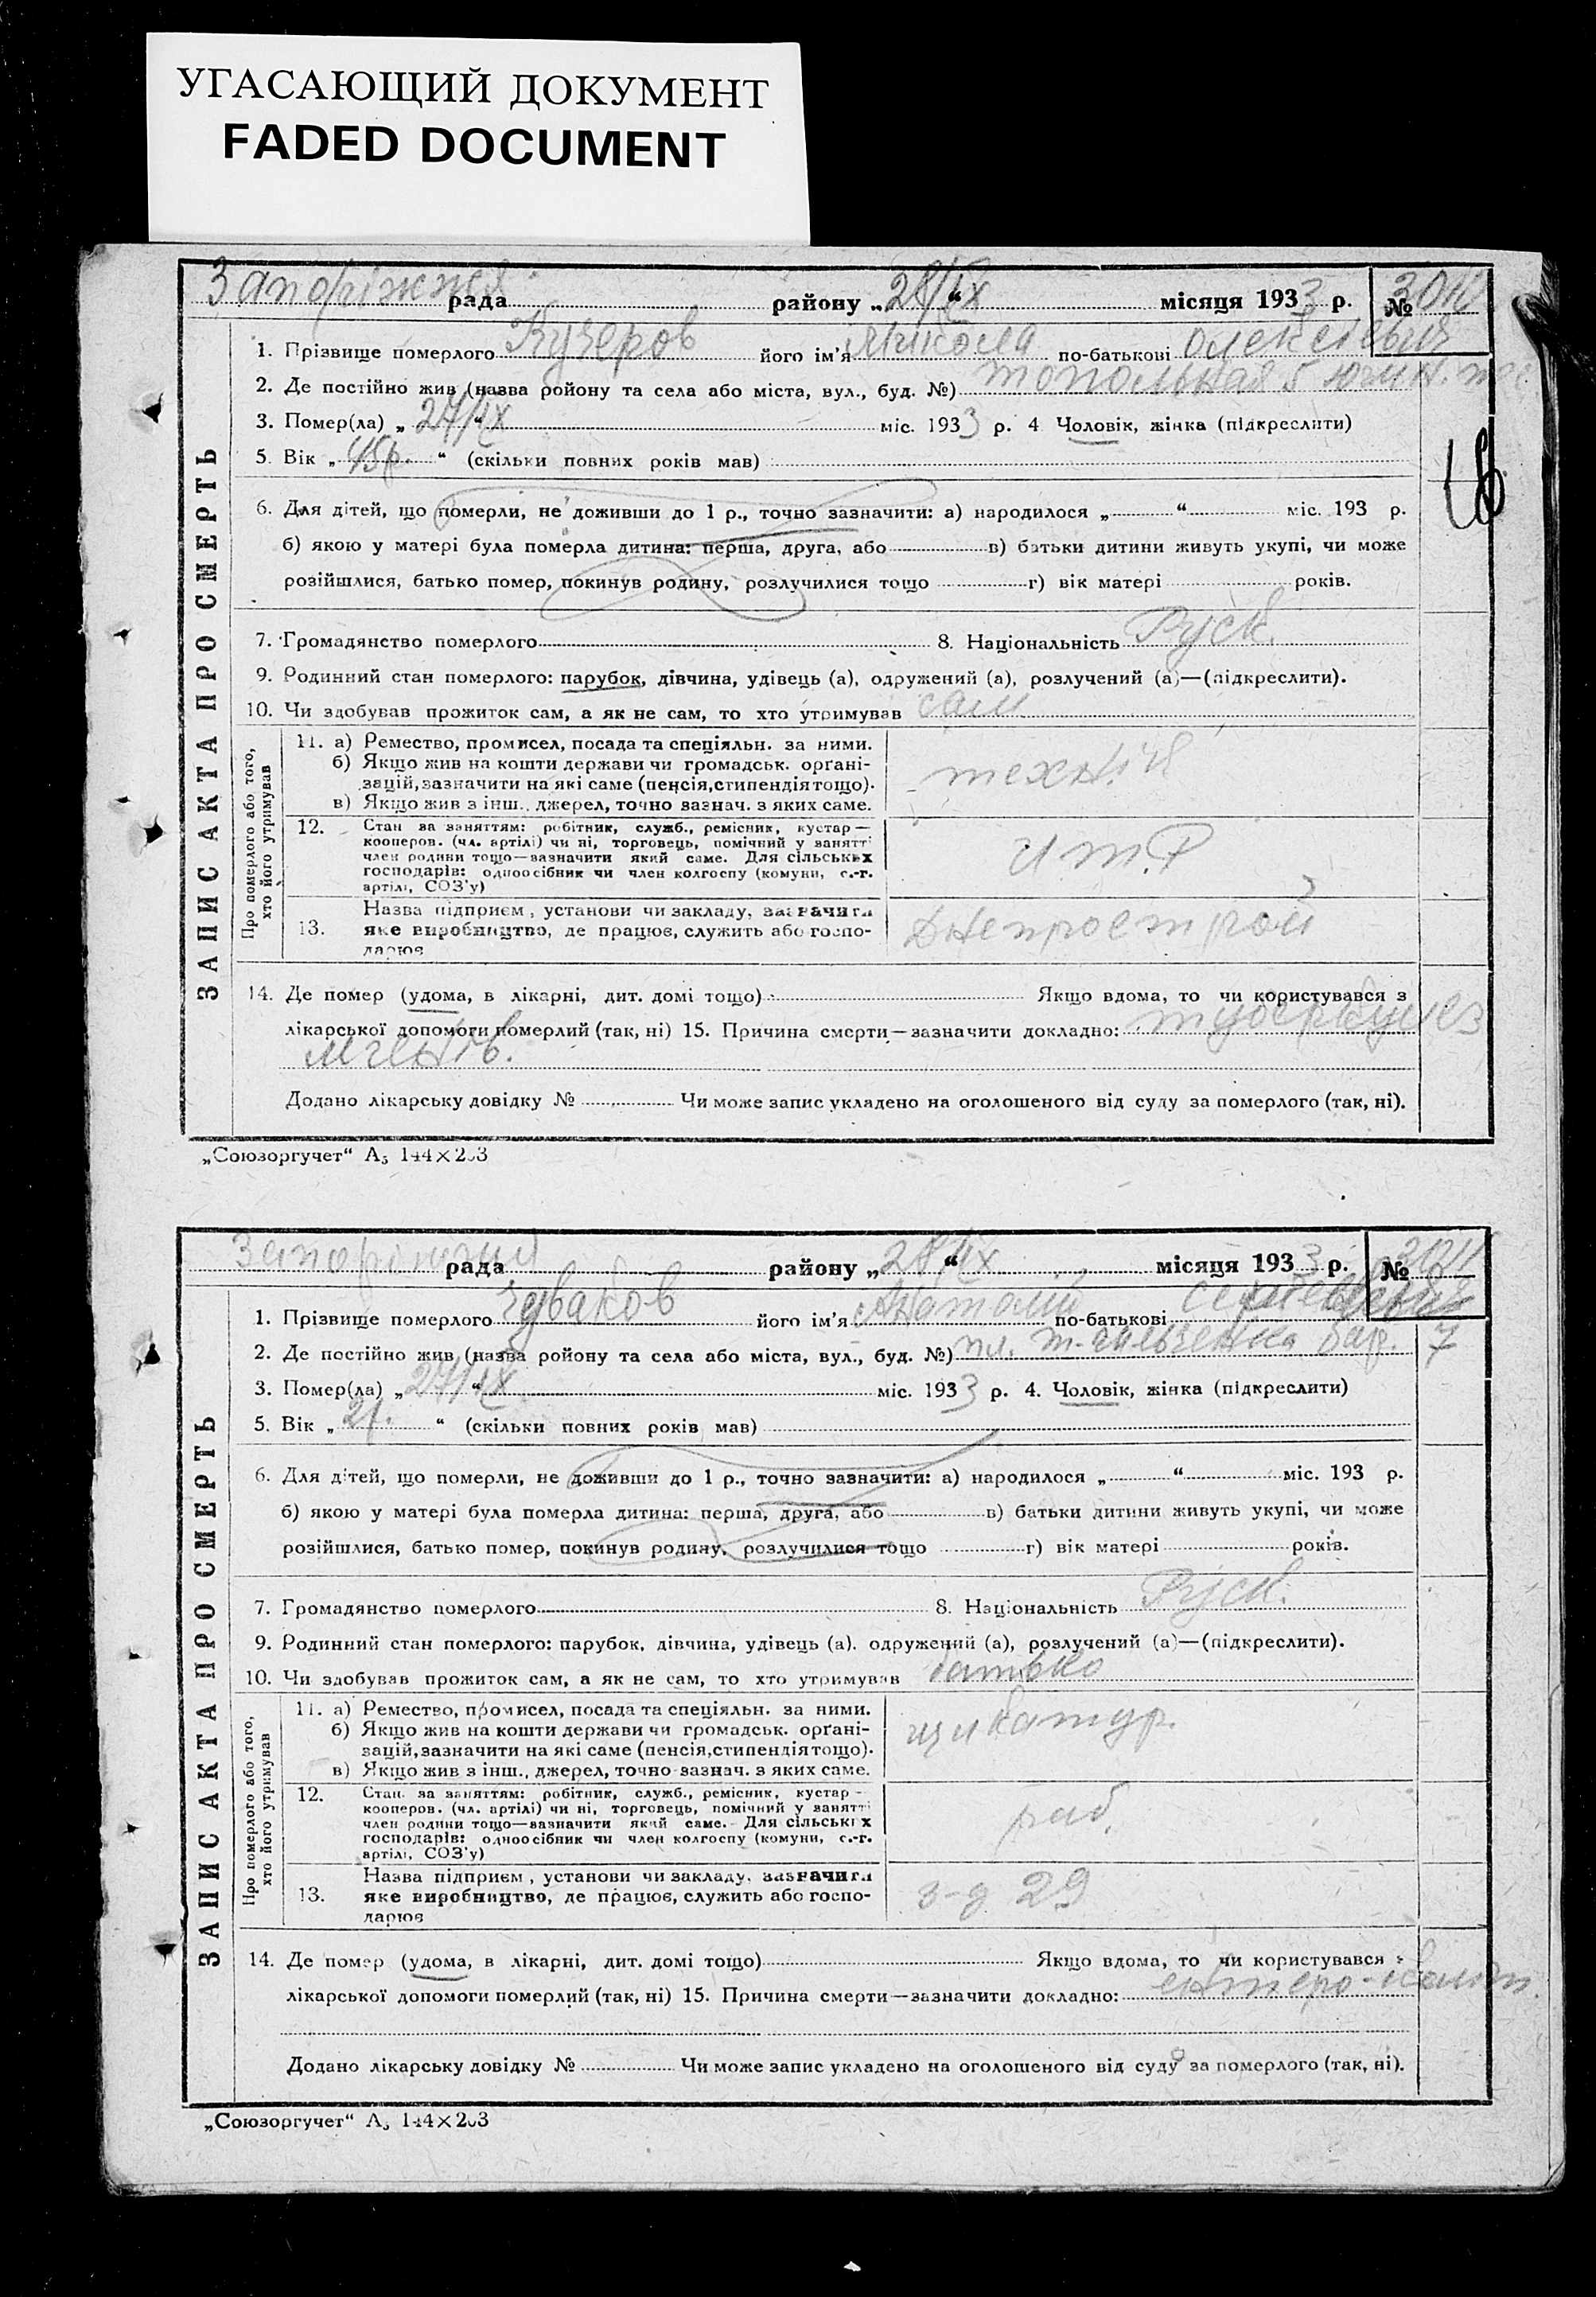 УГАСАЮЩИЙ ДОКУМЕНТ
FADED DOCUMENT
Запоріжжя рада району „28/IX“ місяця 1933 р. № 3010
ЗАПИС АКТА ПРО СМЕРТЬ
1. Прізвище померлого Кучеров його ім'я Микола по-батькові Олексієвич
2. Де постійно жив (назва ройону та села або міста, вул., буд. №) топольная 5
3. Помер(ла) „27/IX“ міс. 1933 р. 4 Чоловік, жінка (підкреслити)
5. Вік „45р.“ (скільки повних років мав)
6. Для дітей, що померли, не доживши до 1 р., точно зазначити: а) народилося „ “ міс. 193 р.
б) якою у матері була померла дитина: перша, друга, або в) батьки дитини живуть укупі, чи може
розійшлися, батько помер, покинув родину, розлучилися тощо г) вік матері років.
7. Громадянство померлого 8. Національність Руск.
9. Родинний стан померлого: парубок, дівчина, удівець (а), одружений (а), розлучений (а)—(підкреслити).
10. Чи здобував прожиток сам, а як не сам, то хто утримував сам
Про померлого або того, хто його утримував
11. а) Ремество, промисел, посада та спеціяльн. за ними.
б) Якщо жив на кошти держави чи громадськ. орґані-
зацій, зазначити на які саме (пенсія, стипендія тощо).
в) Якщо жив з інш., джерел, точно зазнач. з яких саме.
технік
12. Стан за заняттям: робітник, служб., ремісник, кустар—
кооперов. (чл. артілі) чи ні, торговець, помічний у занятті
член родини тощо—зазначити який саме. Для сільських
господарів: одноосібник чи член колгоспу (комуни, с.-г.
артілі, СОЗ'у)
итр
13. Назва підприєм, установи чи закладу, зазначити
яке виробництво, де працює, служить або госпо-
дарює
Днепрострой
14. Де помер (удома, в лікарні, дит. домі тощо) Якщо вдома, то чи користувався з
лікарської допомоги померлий (так, ні) 15. Причина смерти—зазначити докладно: туберкульоз
легенів.
Додано лікарську довідку № Чи може запис укладено на оголошеного від суду за померлого (так, ні).
„Союзоргучет“ А5 144×203
Запоріжжя рада району „28/IX“ місяця 1933 р. № 3011
ЗАПИС АКТА ПРО СМЕРТЬ
1. Прізвище померлого його ім'я Анатолій по-батькові Сергієвич
2. Де постійно жив (назва ройону та села або міста, вул., буд. №) пл. бар. 7
3. Помер(ла) „27/IX“ міс. 1933 р. 4. Чоловік, жінка (підкреслити)
5. Вік „2р.“ (скільки повних років мав)
6. Для дітей, що померли, не доживши до 1 р., точно зазначити: а) народилося „ “ міс. 193 р.
б) якою у матері була померла дитина: перша, друга, або в) батьки дитини живуть укупі, чи може
розійшлися, батько помер, покинув родину, розлучилися тощо г) вік матері років.
7. Громадянство померлого 8. Національність Руск.
9. Родинний стан померлого: парубок, дівчина, удівець (а), одружений (а), розлучений (а)—(підкреслити).
10. Чи здобував прожиток сам, а як не сам, то хто утримував батько
Про померлого або того, хто його утримував
11. а) Ремество, промисел, посада та спеціяльн. за ними.
б) Якщо жив на кошти держави чи громадськ. орґані-
зацій, зазначити на які саме (пенсія, стипендія тощо).
в) Якщо жив з інш., джерел, точно зазнач. з яких саме.
щикатур.
12. Стан за заняттям: робітник, служб., ремісник, кустар—
кооперов. (чл. артілі) чи ні, торговець, помічний у занятті
член родини тощо—зазначити який саме. Для сільських
господарів: одноосібник чи член колгоспу (комуни, с.-г.
артілі, СОЗ'у)
раб.
13. Назва підприєм, установи чи закладу, зазначити
яке виробництво, де працює, служить або госпо-
дарює
з-д 29
14. Де помер (удома, в лікарні, дит. домі тощо) Якщо вдома, то чи користувався з
лікарської допомоги померлий (так, ні) 15. Причина смерти—зазначити докладно: ентеро-коліт.
Додано лікарську довідку № Чи може запис укладено на оголошеного від суду за померлого (так, ні).
„Союзоргучет“ А5 144×203